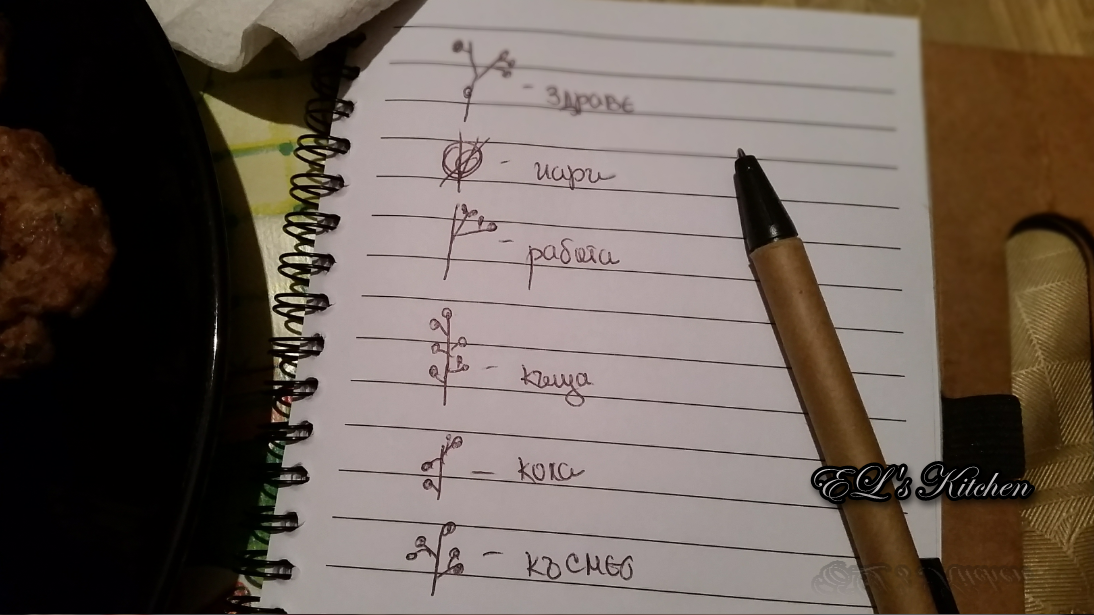 - здраве
- пари
- работа
- къща
- кола
- късмет
EL's Kitchen